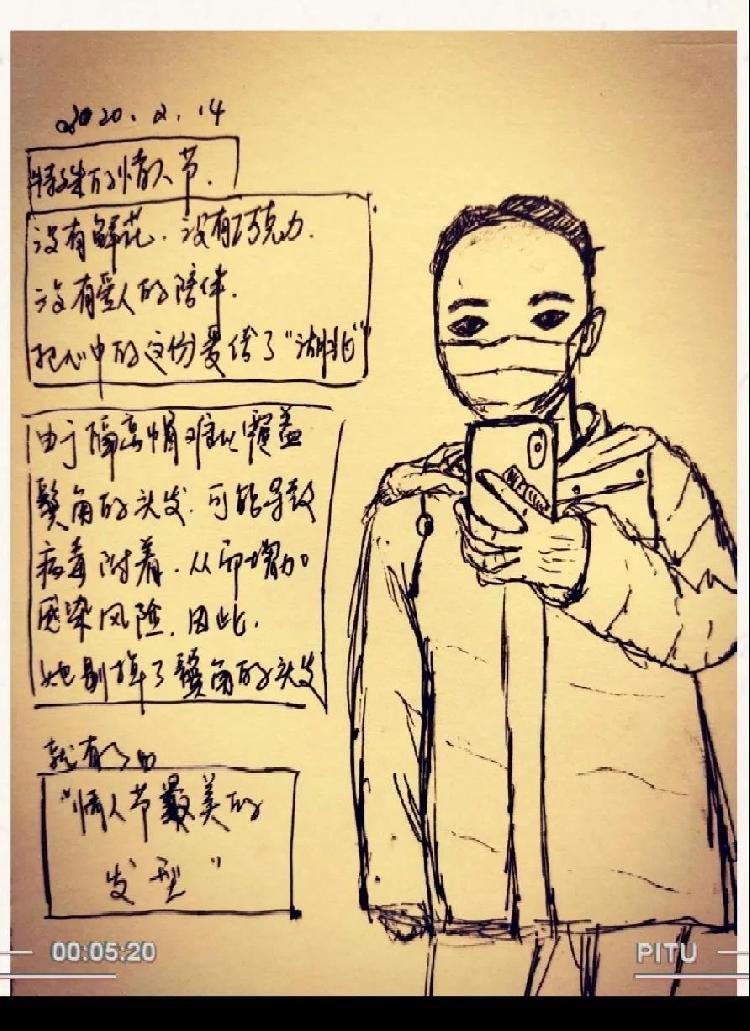 2020.2.14
特殊的情人节.
没有鲜花.没有巧克力.
没有爱人的陪伴.
把心中的这份爱给了“湖北”
由于隔离帽难以覆盖
鬓角的头发.可能导致
病毒附着.从而增加
感染风险.因此.
她剔掉了鬓角的头发
就有了
“情人节最美的
发型”
00:05:20
PITU